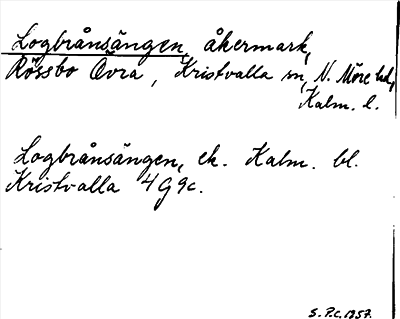 Logbrånsängen, åkermark,
Rössbo Övra, Kristvalla sn, N. Möre hd,
Kalm. l.
Logbrånsängen, ek. Kalm. bl.
Kristvalla 4G9c.
S. P.C. 1957.